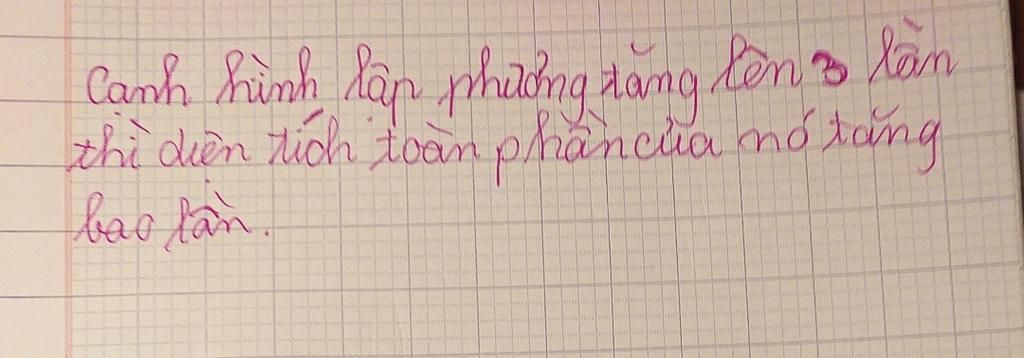 Cạnh hình lập phương tăng lên 3 lần
thì diện tích toàn phần của nó tăng
bao lần.